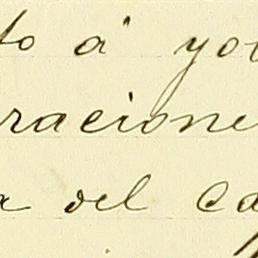 to á yo
racione
a del ca